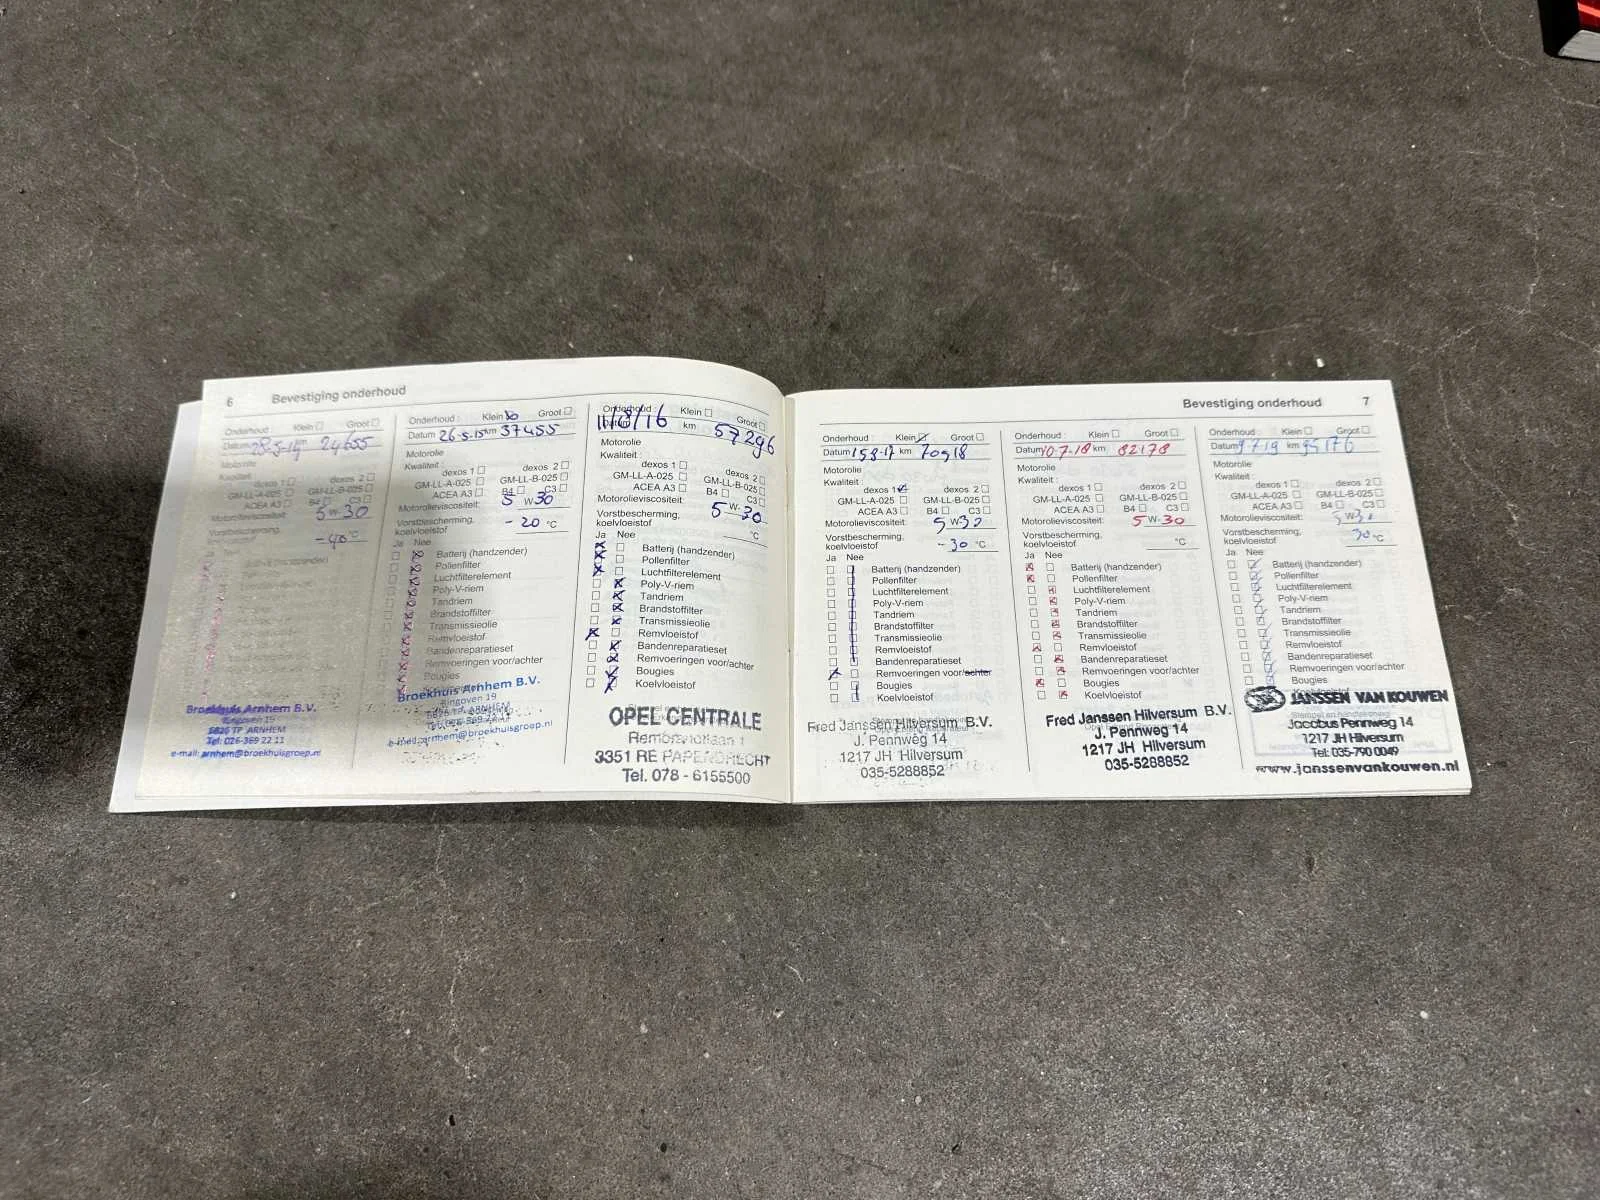 6 Bevestiging onderhoud
Onderhoud : Klein Groot
Datum 28-5-14 24655
Motorolie
Kwaliteit :
dexos 1 dexos 2
GM-LL-A-025 GM-LL-B-025
ACEA A3 B4 C3
Motorolieviscositeit: 5 W-30
Vorstbescherming,
koelvloeistof -40 °C
Ja
Broekhuis Arnhem B.V.
Eingoven 19
6826 TP ARNHEM
Tel: 026-369 22 11
e-mail: arnhem@broekhuisgroep.nl
Onderhoud : Klein Groot
Datum 26-5-15 km 37455
Motorolie
Kwaliteit :
dexos 1 dexos 2
GM-LL-A-025 GM-LL-B-025
ACEA A3 B4 C3
Motorolieviscositeit: 5 W 30
Vorstbescherming,
koelvloeistof -20 °C
Ja Nee
Batterij (handzender)
Pollenfilter
Luchtfilterelement
Poly-V-riem
Tandriem
Brandstoffilter
Transmissieolie
Remvloeistof
Bandenreparatieset
Remvoeringen voor/achter
Bougies
Broekhuis Arnhem B.V.
Eingoven 19
6826 TP ARNHEM
e-mail: arnhem@broekhuisgroep.nl
Onderhoud : Klein Groot
Datum 11/8/16 km 57296
Motorolie
Kwaliteit :
dexos 1 dexos 2
GM-LL-A-025 GM-LL-B-025
ACEA A3 B4 C3
Motorolieviscositeit: 5 W-30
Vorstbescherming,
koelvloeistof °C
Ja Nee
Batterij (handzender)
Pollenfilter
Luchtfilterelement
Poly-V-riem
Tandriem
Brandstoffilter
Transmissieolie
Remvloeistof
Bandenreparatieset
Remvoeringen voor/achter
Bougies
Koelvloeistof
OPEL CENTRALE
Rembrandtlaan 1
3351 RE PAPENDRECHT
Tel. 078 - 6155500
Bevestiging onderhoud 7
Onderhoud : Klein Groot
Datum 15 8-17 km 70918
Motorolie
Kwaliteit :
dexos 1 dexos 2
GM-LL-A-025 GM-LL-B-025
ACEA A3 B4 C3
Motorolieviscositeit: 5 W 30
Vorstbescherming,
koelvloeistof -30 °C
Ja Nee
Batterij (handzender)
Pollenfilter
Luchtfilterelement
Poly-V-riem
Tandriem
Brandstoffilter
Transmissieolie
Remvloeistof
Bandenreparatieset
Remvoeringen voor/achter
Bougies
Koelvloeistof
Fred Janssen Hilversum B.V.
J. Pennweg 14
1217 JH Hilversum
035-5288852
Onderhoud : Klein Groot
Datum 10-7-18 km 82178
Motorolie
Kwaliteit :
dexos 1 dexos 2
GM-LL-A-025 GM-LL-B-025
ACEA A3 B4 C3
Motorolieviscositeit: 5 W-30
Vorstbescherming,
koelvloeistof °C
Ja Nee
Batterij (handzender)
Pollenfilter
Luchtfilterelement
Poly-V-riem
Tandriem
Brandstoffilter
Transmissieolie
Remvloeistof
Bandenreparatieset
Remvoeringen voor/achter
Bougies
Koelvloeistof
Fred Janssen Hilversum B.V.
J. Pennweg 14
1217 JH Hilversum
035-5288852
Onderhoud : Klein Groot
Datum 9 7 19 km 95176
Motorolie
Kwaliteit :
dexos 1 dexos 2
GM-LL-A-025 GM-LL-B-025
ACEA A3 B4 C3
Motorolieviscositeit: 5 W 30
Vorstbescherming,
koelvloeistof 30 °C
Ja Nee
Batterij (handzender)
Pollenfilter
Luchtfilterelement
Poly-V-riem
Tandriem
Brandstoffilter
Transmissieolie
Remvloeistof
Bandenreparatieset
Remvoeringen voor/achter
Bougies
Koelvloeistof
JANSSEN VAN KOUWEN
Jacobus Pennweg 14
1217 JH Hilversum
Tel: 035-790 0049
www.janssenvankouwen.nl